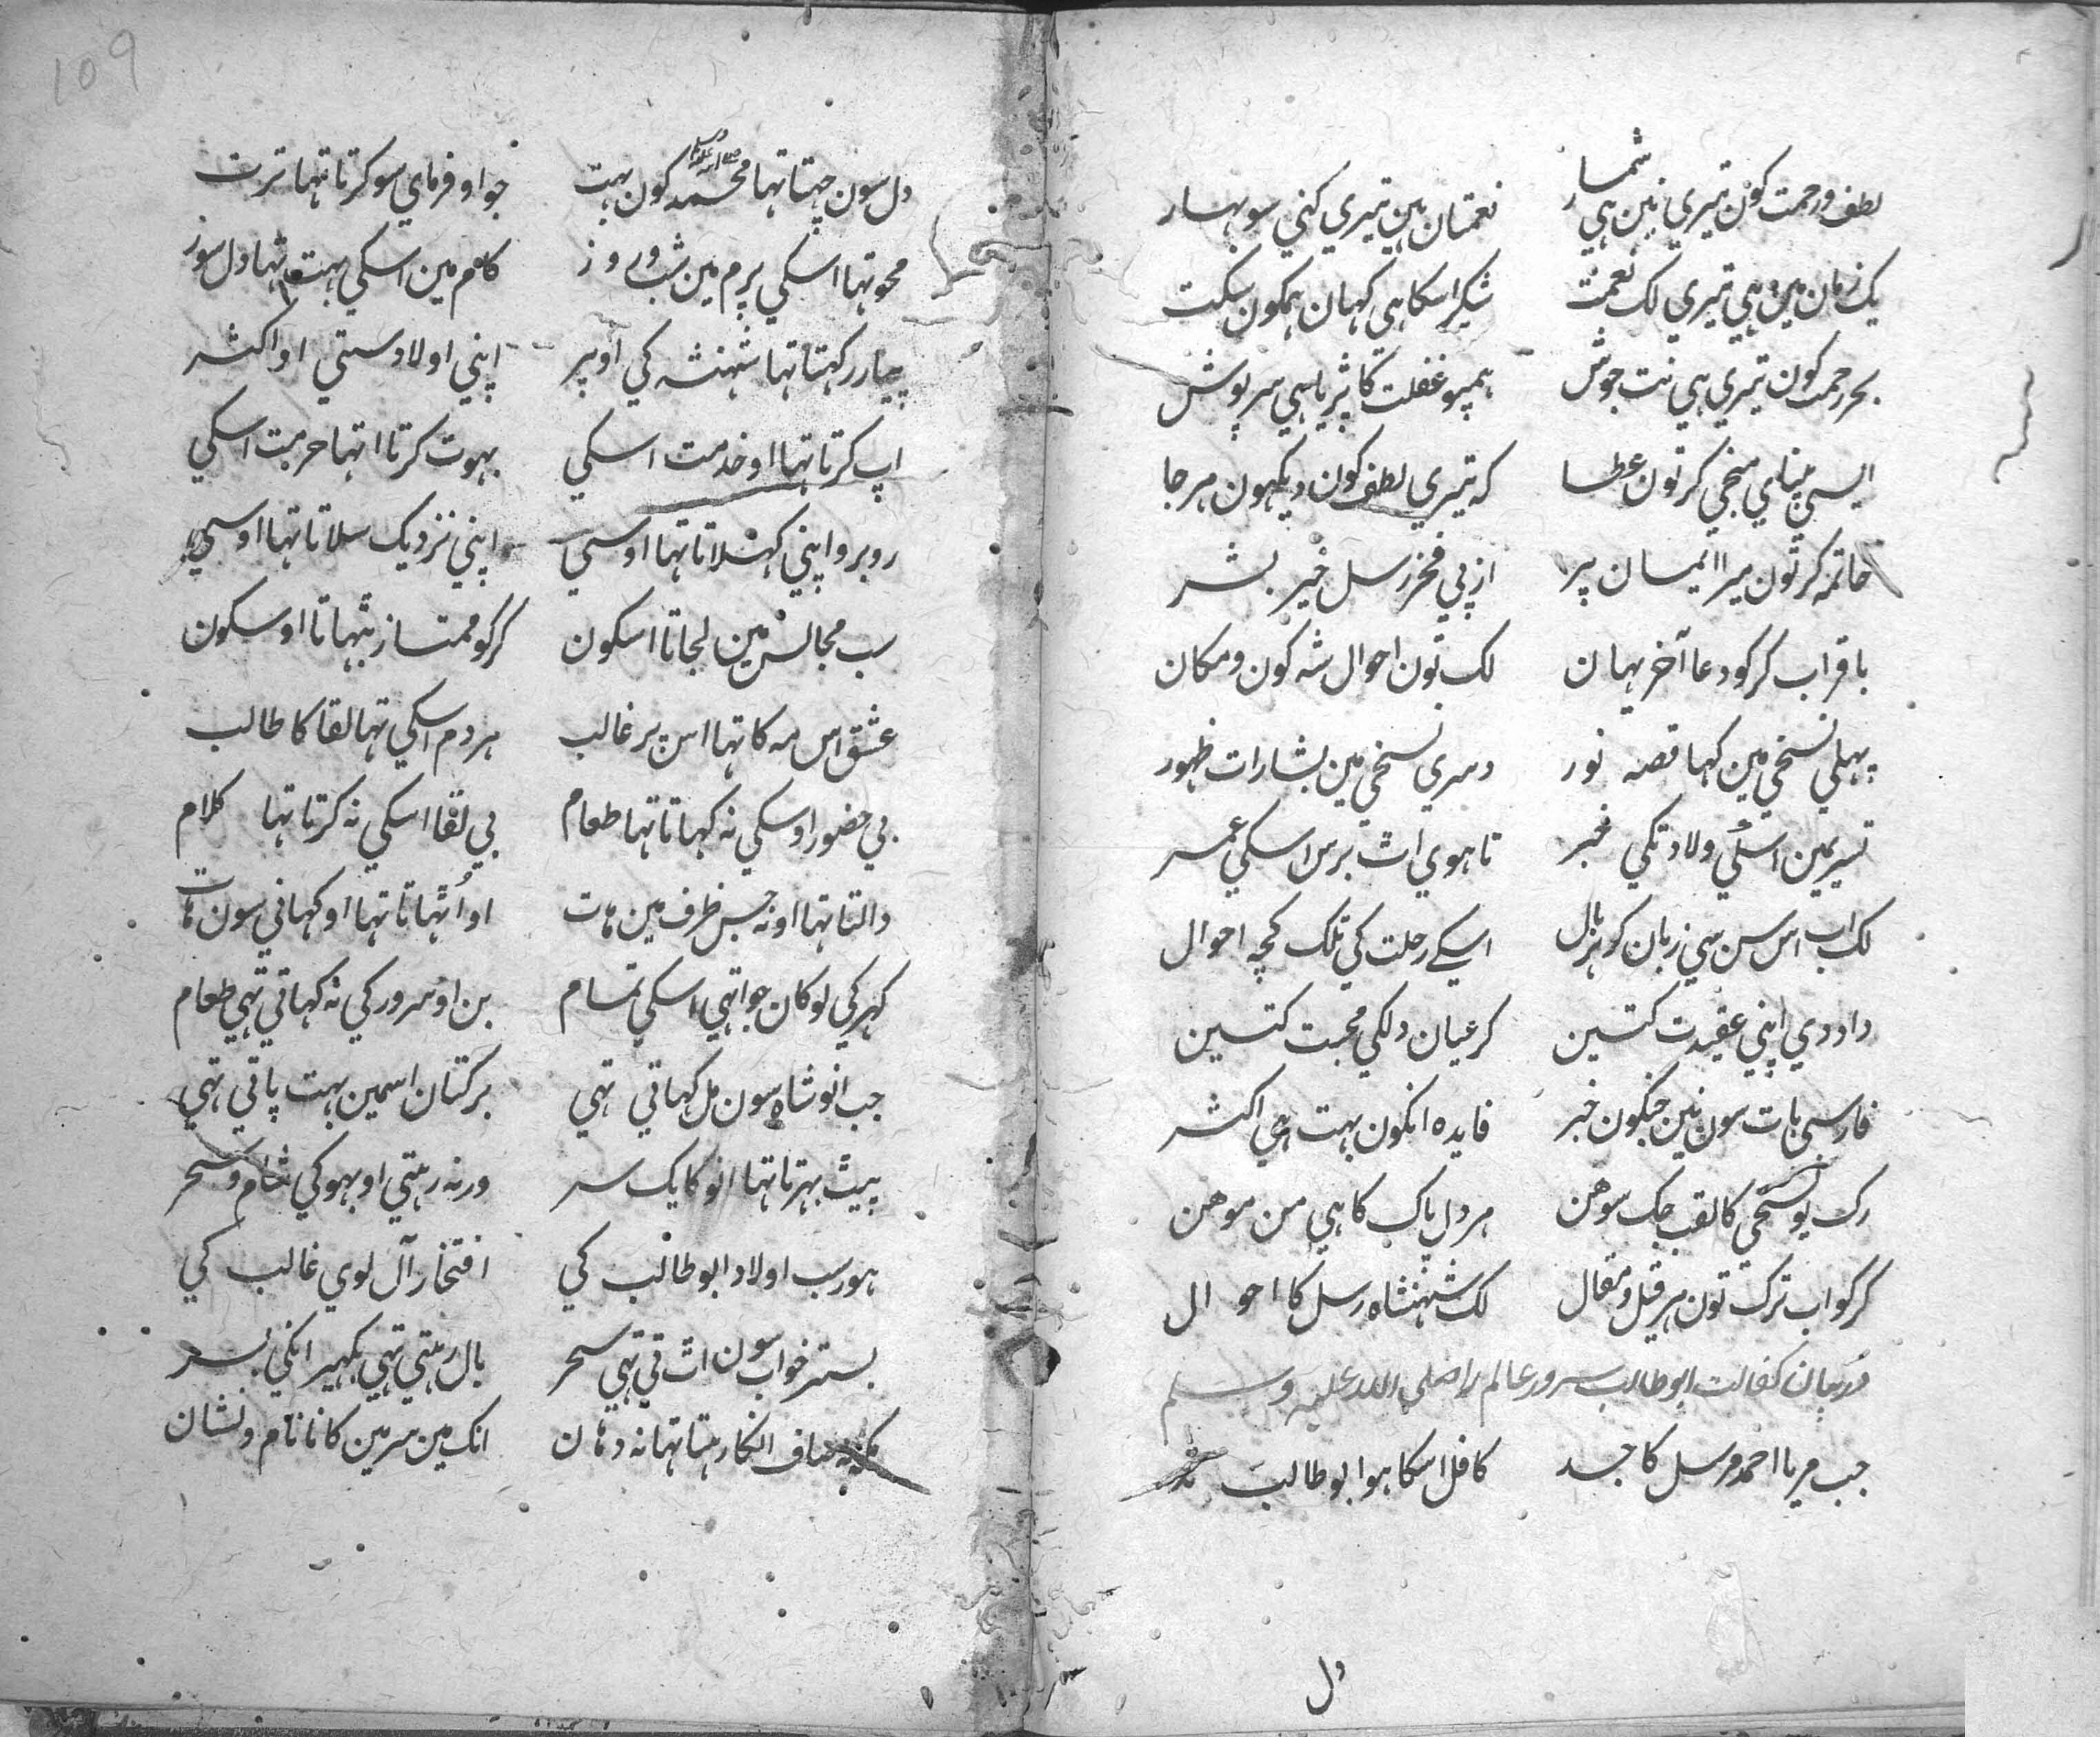 لطف و رحمت کون تیری نین هي شمار نعمتان هین تیري کني سو بهار
یک زمان مین هي تیري لک نعمت شکر اسکا هی کهان همکون سکت
بحر رحمت کون تیري هي نت جوش همپو غفلت کا پڑیا هي سرپوش
ایسي بینایي منجي کر تون عطا که تیري لطف کون دیکهون هر جا
خاتمه کر تون میرا ایمان پر از پي فخر رسل خیر بشر
باقر اب کر کو دعا آخر یهان لک تون احوال شه کون و مکان
پهلي نسخي مین کها قصه نور دسري نسخي مین بشارات ظهور
تسریمین اسکي ولادتکي خبر تا هوي اٹ برس اسکي عمر
لک اب اس سن سي زبان کو هر بال اسکے رحلت کي تلک کچه احوال
داد دي اپني عقیدت کتین کر عیان دلکي محبت کتین
فارسي بات سون نین جنکون خبر فایده انکون بهت هي اکثر
رک یو نسخي کا لقب جک سوهن هر دل پاک کا هي من موهن
کر کو اب ترک تون هر قیل و مقال لک شهنشاه رسل کا احوال
در بیان کفالت ابو طالب سرور عالم را صلي الله علیه وسلم
جب مریا احمد مرسل کا جد کافل اسکا هوا ابو طالب
دل
109
دل سون چهتا تها محمد صلی الله علیه وسلم کون بهت جو او فرماي سو کرتا تها ترت
محو تها اسکي پرم مین شب و روز کام مین اسکي بهت تها دل سوز
پیار رکهتا تها شهنشه کي اوپر اپني اولاد ستي او اکثر
اپ کرتا تها او خدمت اسکي بهوت کرتا اتها حرمت اسکي
روبرو اپني کهلاتا تها اوسي اپني نزدیک سلاتا تها اوسي
سب مجالس مین لجاتا اسکون کر کو ممتاز بٹهاتا اوسکون
عشق اس مه کا تها اس پر غالب هر دم اسکي تها لقا کا طالب
بي حضور اوسکي نه کهاتا تها طعام بي لقا اسکي نه کرتا تها کلام
دالتا تها او نه جس ظرف مین هات او اُٹهاتا تها او کهاني سون هات
گهر کي لوکان جو اتهي اسکي تمام بن او سرور کي نه کهاتي تهي طعام
جب انو شاه سون مل کهاتي تهي برکتان اسمین بهت پاتي تهي
پیٹ بهرتا تها انو کا یک سر ورنه رهتي او بهوکي شام و سحر
هور سب اولاد ابو طالب کي افتخار آل لوي غالب کي
بستر خواب سون اٹتي تهي سحر بال رهتي تهي بکهیر انکي بسر
صاف انکا رهتا تها نه دهان انک مین سرمین کا نا نام و نشان